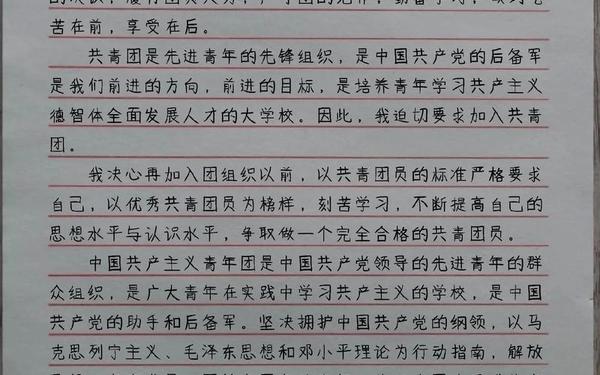 苦在前，享受在后。
共青团是先进青年的先锋组织，是中国共产党的后备军
是我们前进的方向，前进的目标，是培养青年学习共产主义
德智体全面发展人才的大学校。因此，我迫切要求加入共青
团。
我决心再加入团组织以前，以共青团员的标准严格要求
自己，以优秀共青团员为榜样，刻苦学习，不断提高自己的
思想水平与认识水平，争取做一个完全合格的共青团员。
中国共产主义青年团是中国共产党领导的先进青年的群
众组织，是广大青年在实践中学习共产主义的学校，是中国
共产党的助手和后备军。坚决拥护中国共产党的纲领，以马
克思列宁主义、毛泽东思想和邓小平理论为行动指南，解放